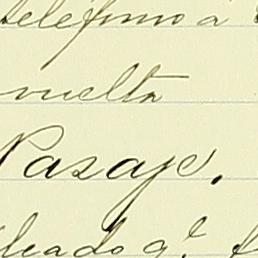 telefono á
vuelta
Pasaje.
leado q.e